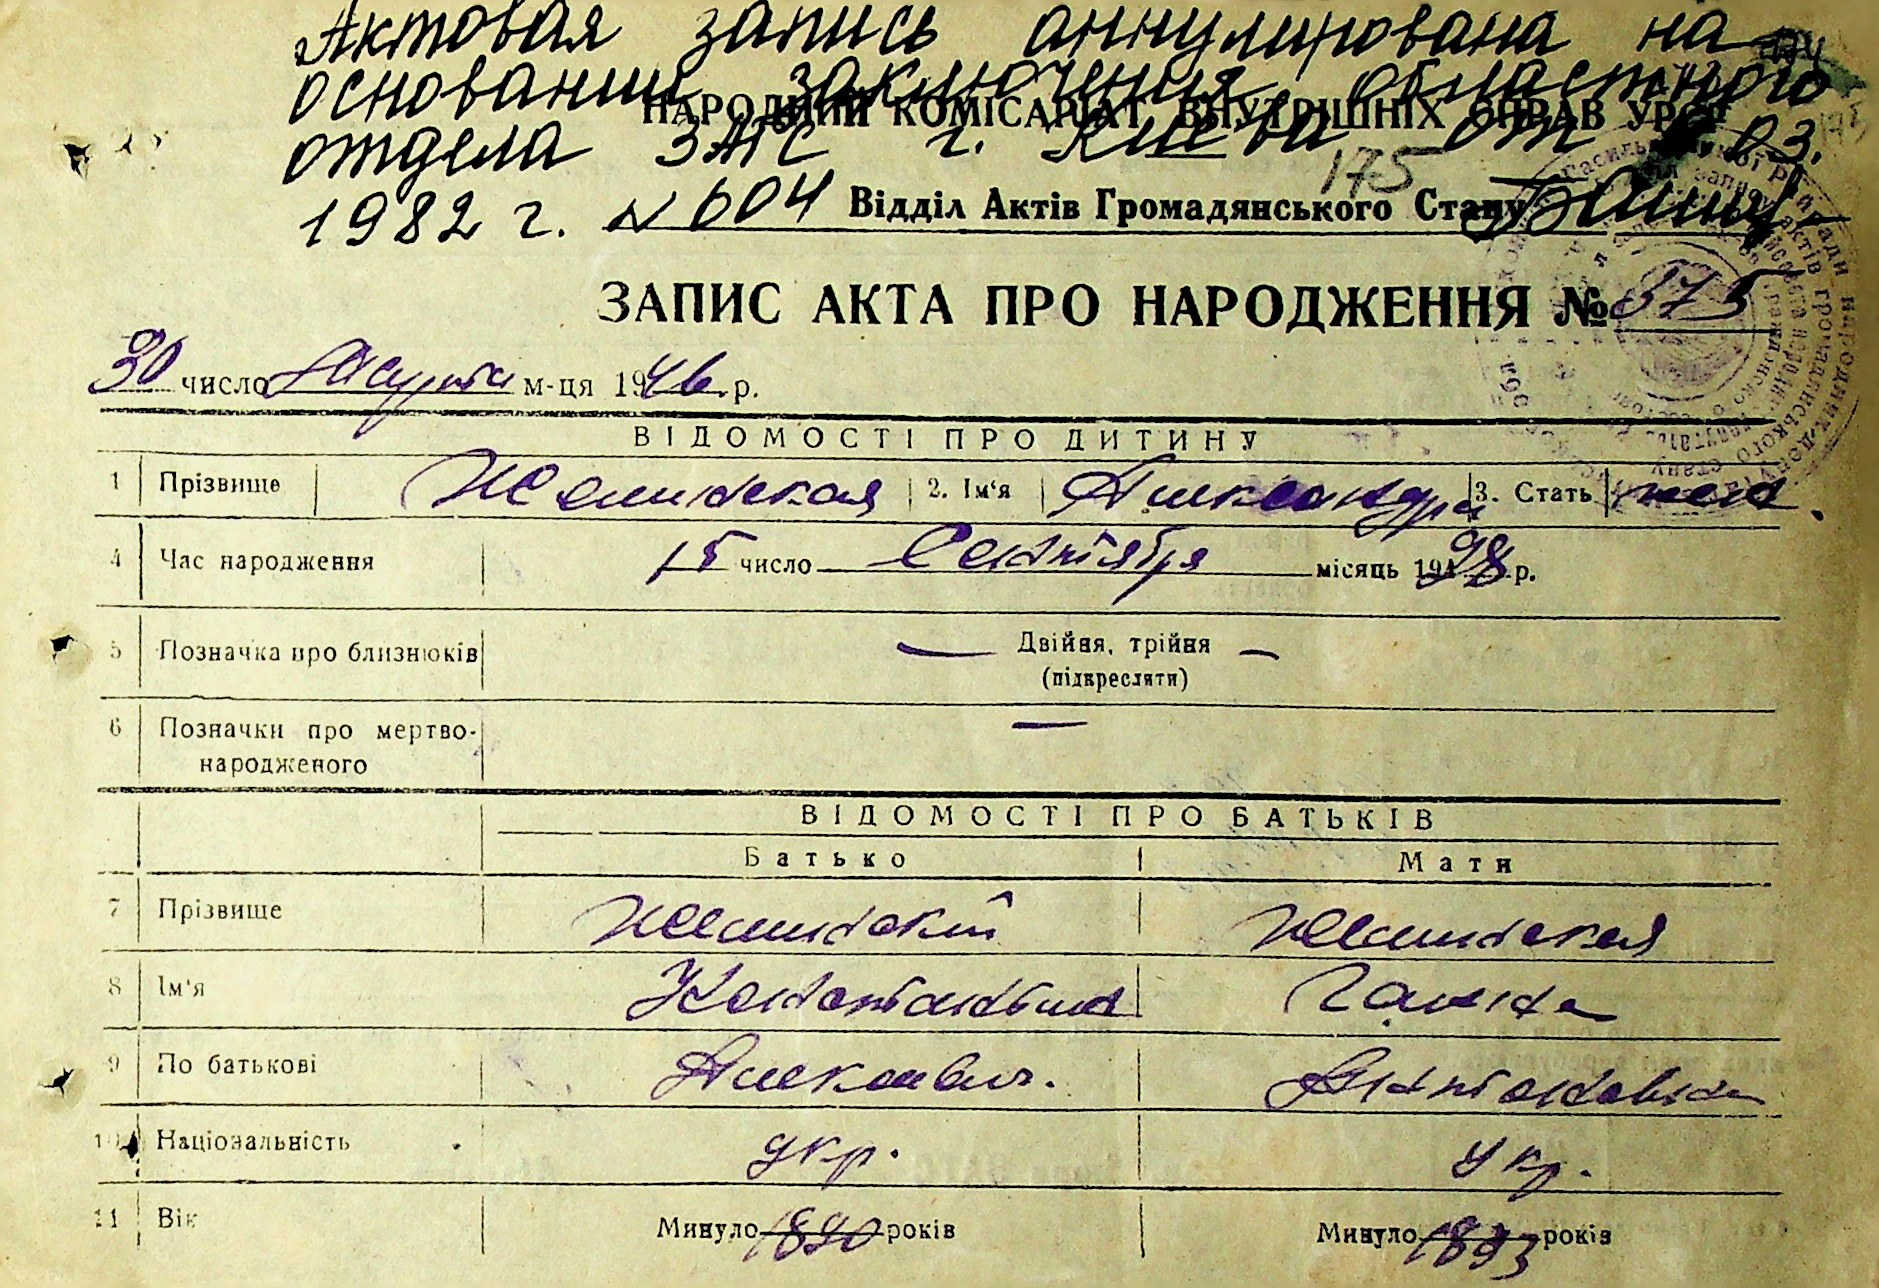 Актовая запись аннулирована на
основании заключения областного
отдела ЗАГС г. Киева от 03.
1982 г. N 604
НАРОДНИЙ КОМІСАРІАТ ВНУТРІШНІХ СПРАВ УРСР
175
Відділ Актів Громадянського Стану
ЗАПИС АКТА ПРО НАРОДЖЕННЯ № 375
30 число Августа м-ця 1946 р.
ВІДОМОСТІ ПРО ДИТИНУ
1 Прізвище 2. Ім'я Александра 3. Стать жен.
4 Час народження 15 число Сентября місяць 1928 р.
5 Позначка про близнюків — Двійня, трійня —
(підкреслити)
6 Позначки про мертво- —
народженого
ВІДОМОСТІ ПРО БАТЬКІВ
Батько Мати
7 Прізвище
8 Ім'я Константин Ганна
9 По батькові Алексеевич. Антоновна
10 Національність укр. укр.
11 Вік Минуло 1890 років Минуло 1893 років